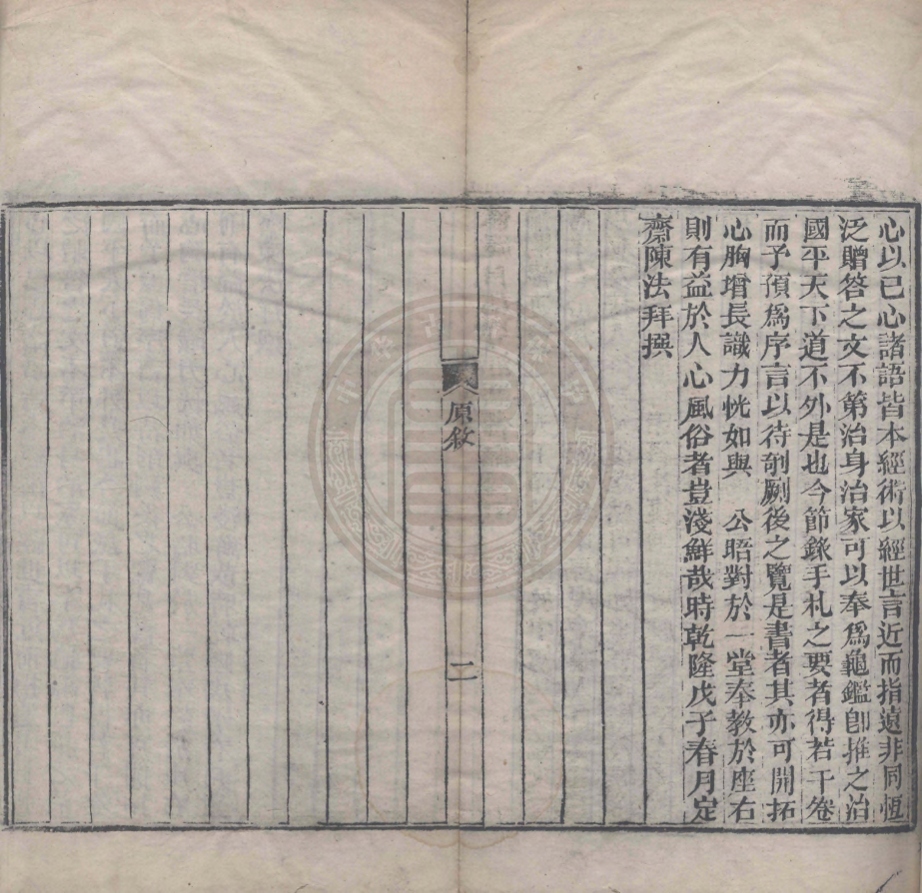 心以已心諸語皆本經術以經世言近而指遠非同恆
泛贈答之文不第治身治家可以奉爲龜鑑卽推之治
國平天下道不外是也今節錄手札之要者得若干卷
而予預爲序言以待剞劂後之覽是書者其亦可開拓
心胸增長識力恍如與　公晤對於一堂奉教於座右
則有益於人心風俗者豈淺鮮哉時乾隆戊子春月定
齋陳法拜撰
原敘
二